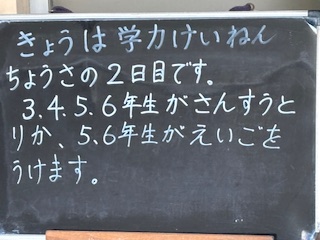 きょうは学力けいねん
ちょうさの2日目です。
3.4.5.6年生がさんすうと
りか、5.6年生がえいごを
うけます。